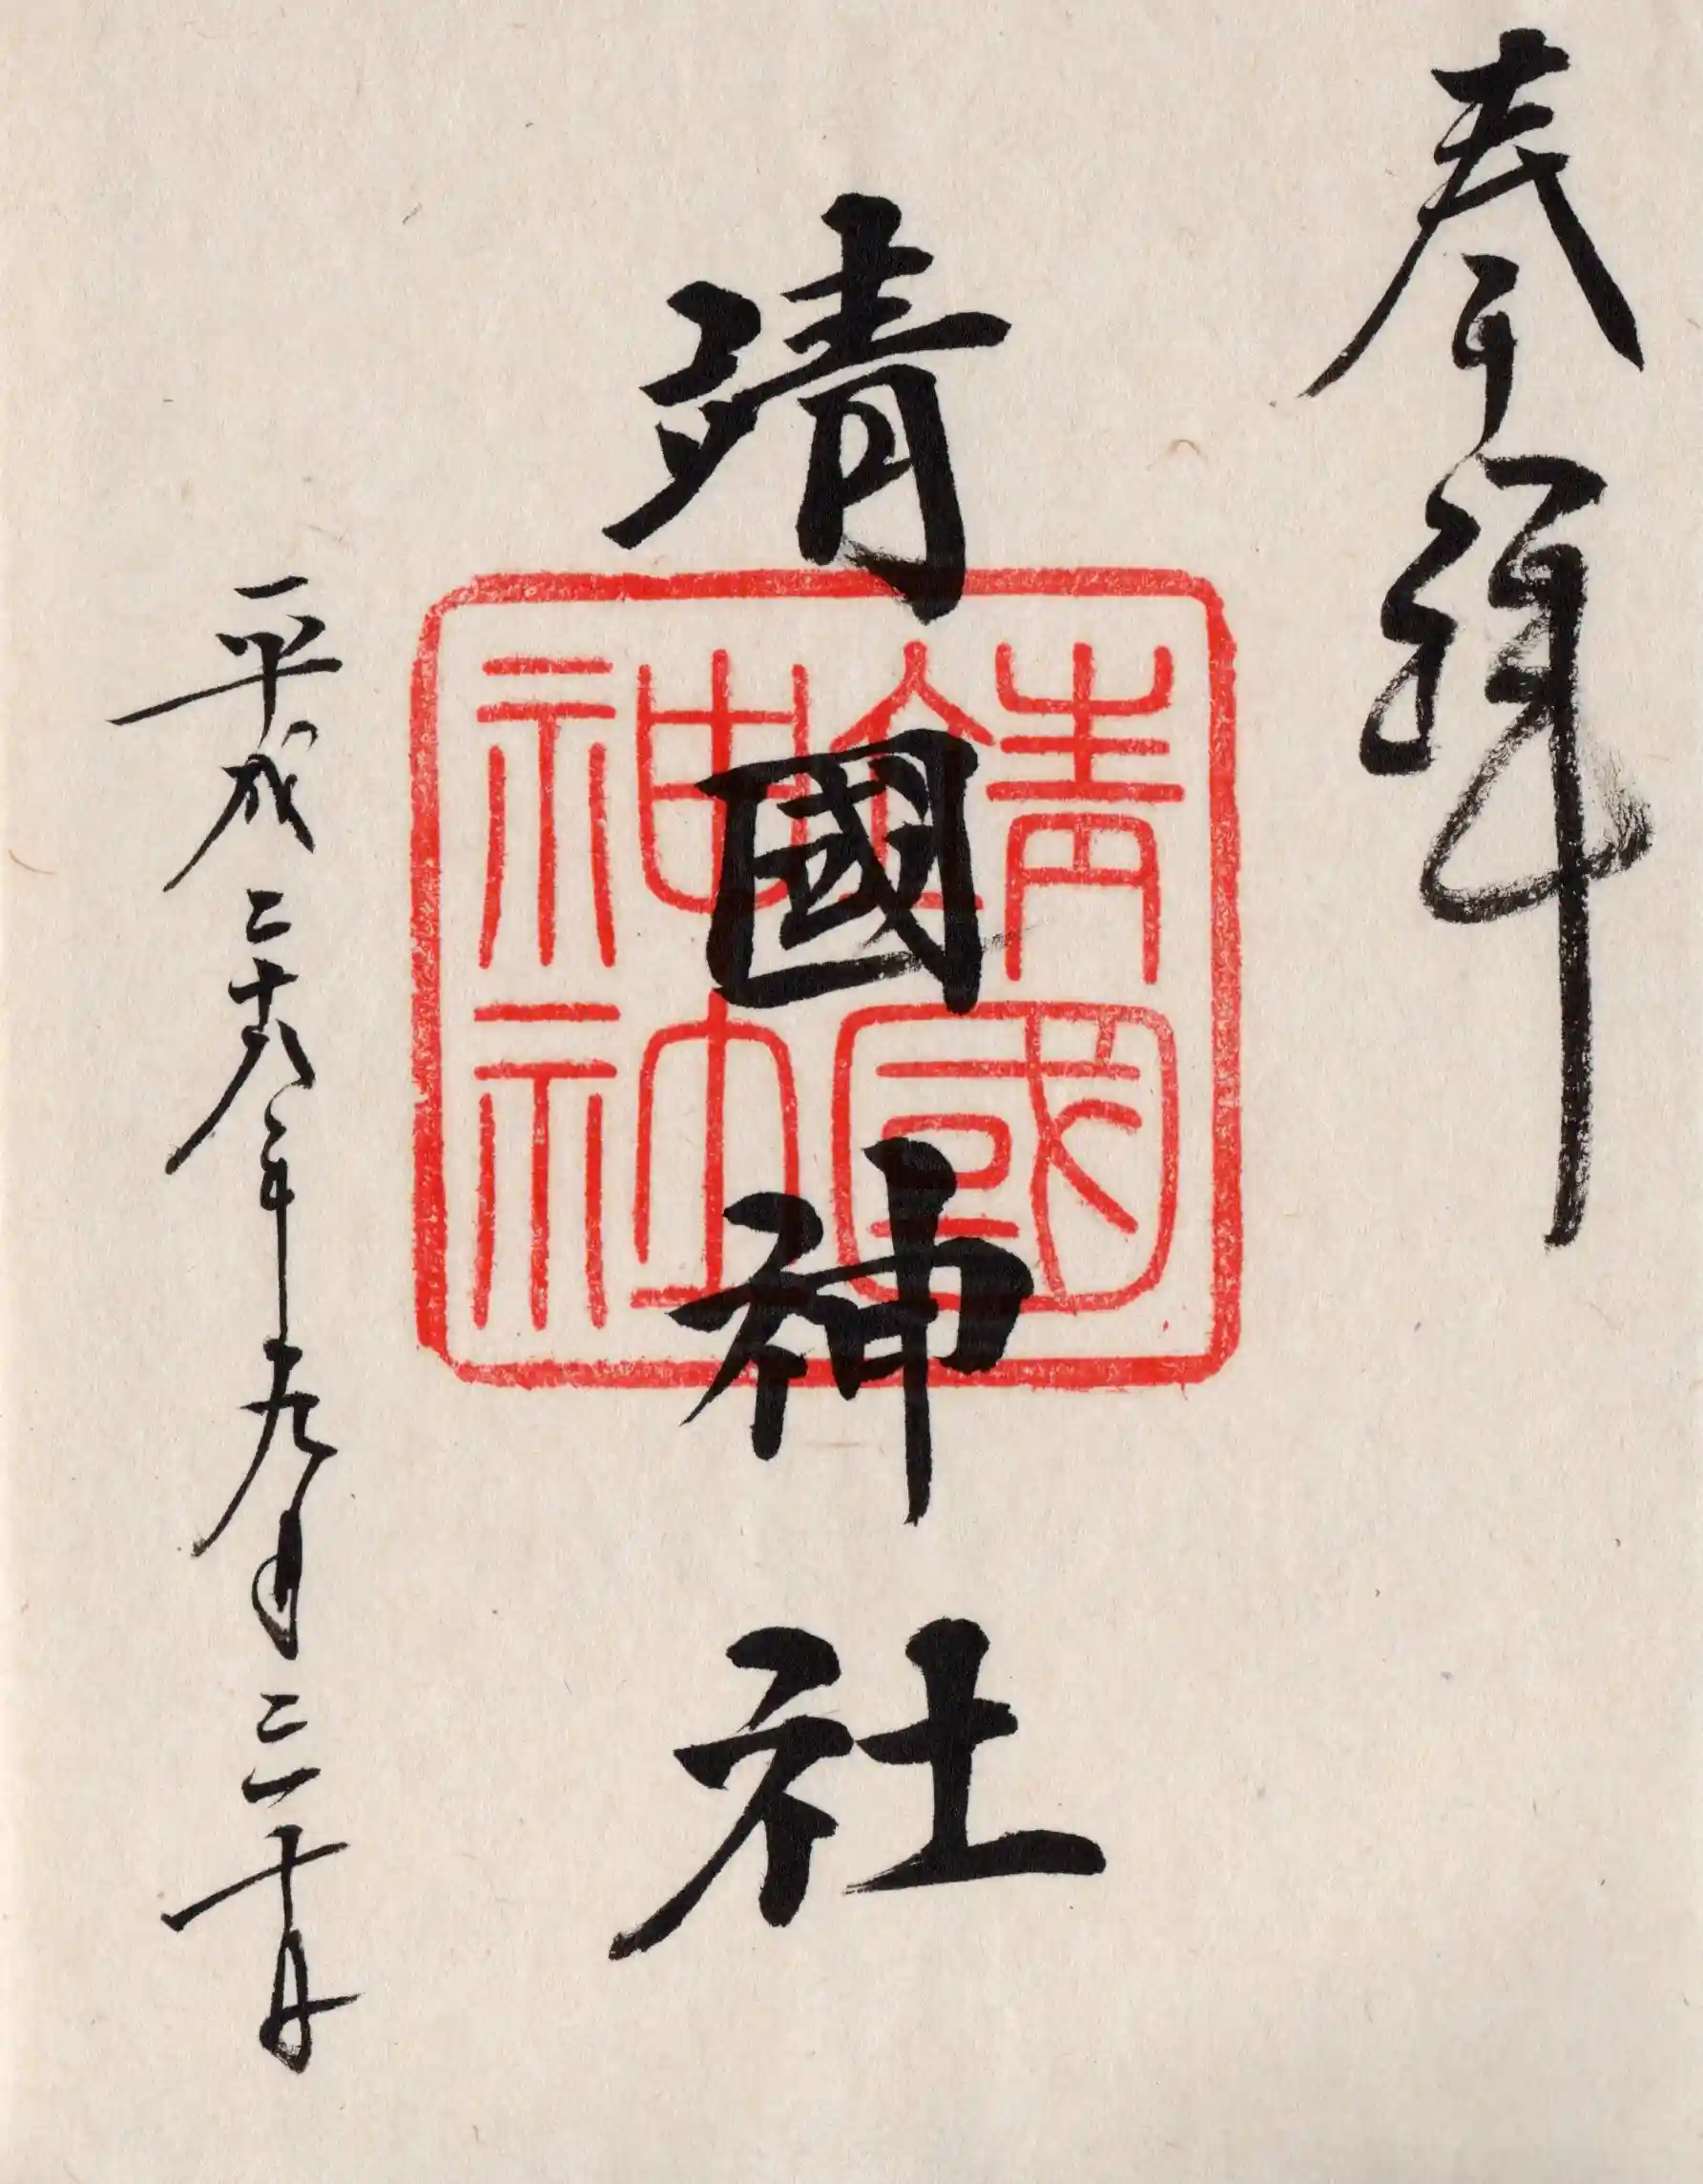 奉拜
靖國神社
靖國
神社
平成二十六年九月三十日